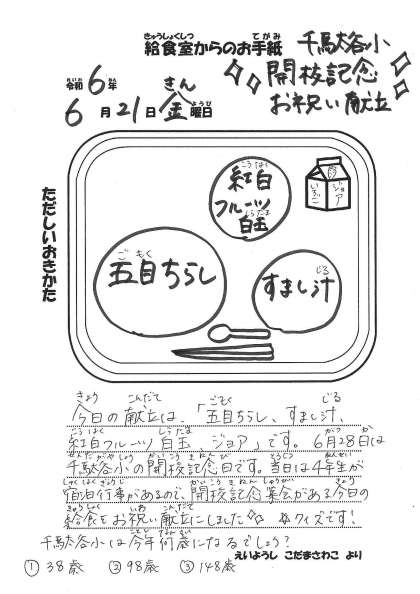 給食室からのお手紙
千駄谷小
開校記念
お祝い献立
令和6年
6月21日金曜日
ただしいおきかた
紅白
フルーツ
白玉
いちご
ジョア
五目ちらし
すまし汁
今日の献立は、「五目ちらし、すまし汁、
紅白フルーツ白玉、ジョア」です。6月28日は
千駄谷小の開校記念日です。当日は4年生が
宿泊行事があるので、開校記念集会がある今日の
給食をお祝い献立にしました☆☆ ★クイズです!
千駄谷小は今年何歳になるでしょう?
えいようし こだまさわこ より
① 38歳 ② 98歳 ③ 148歳